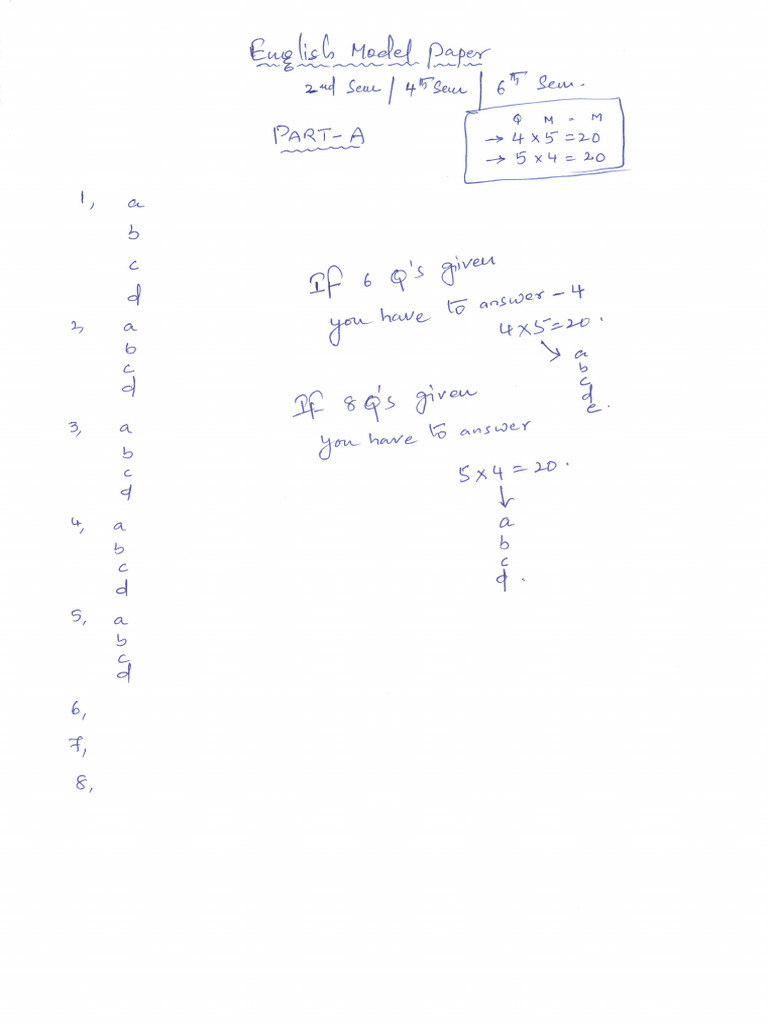 English Model Paper
2nd Sem / 4th Sem / 6th Sem.
PART-A
Q M = M
→ 4 x 5 = 20
→ 5 x 4 = 20
1, a
b
c
d
2, a
b
c
d
3, a
b
c
d
4, a
b
c
d
5, a
b
c
d
6,
7,
8,
If 6 Q's given
you have to answer - 4
4 x 5 = 20.
a
b
c
d
e.
If 8 Q's given
you have to answer
5 x 4 = 20.
a
b
c
d.